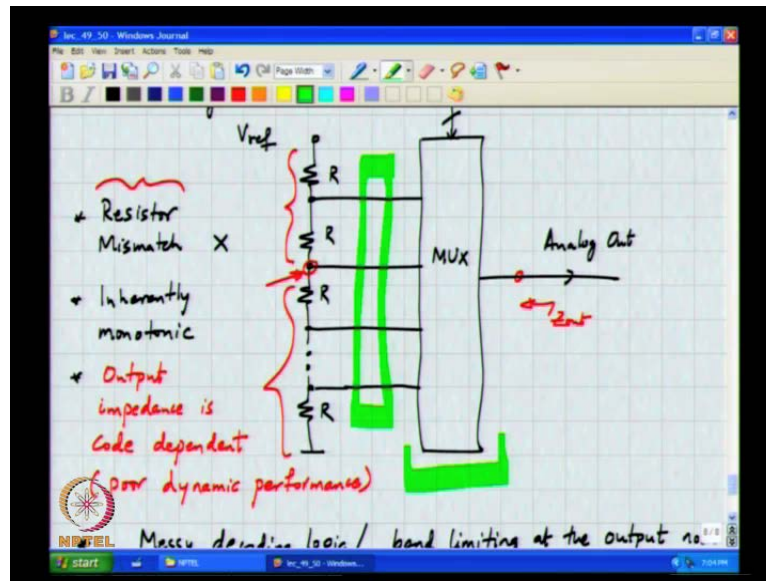 lec_49_50 - Windows Journal
File Edit View Insert Actions Tools Help
Page Width
B I
Vref
R
* Resistor
Mismatch X
R
MUX
Analog Out
R
Zout
* Inherantly
monotonic
* Output
impedance is
R
code dependent
(poor dynamic performance)
NPTEL
Messy decoding logic / band limiting at the output no
8/8
start
NPTEL
lec_49_50 - Windows...
7:04 PM